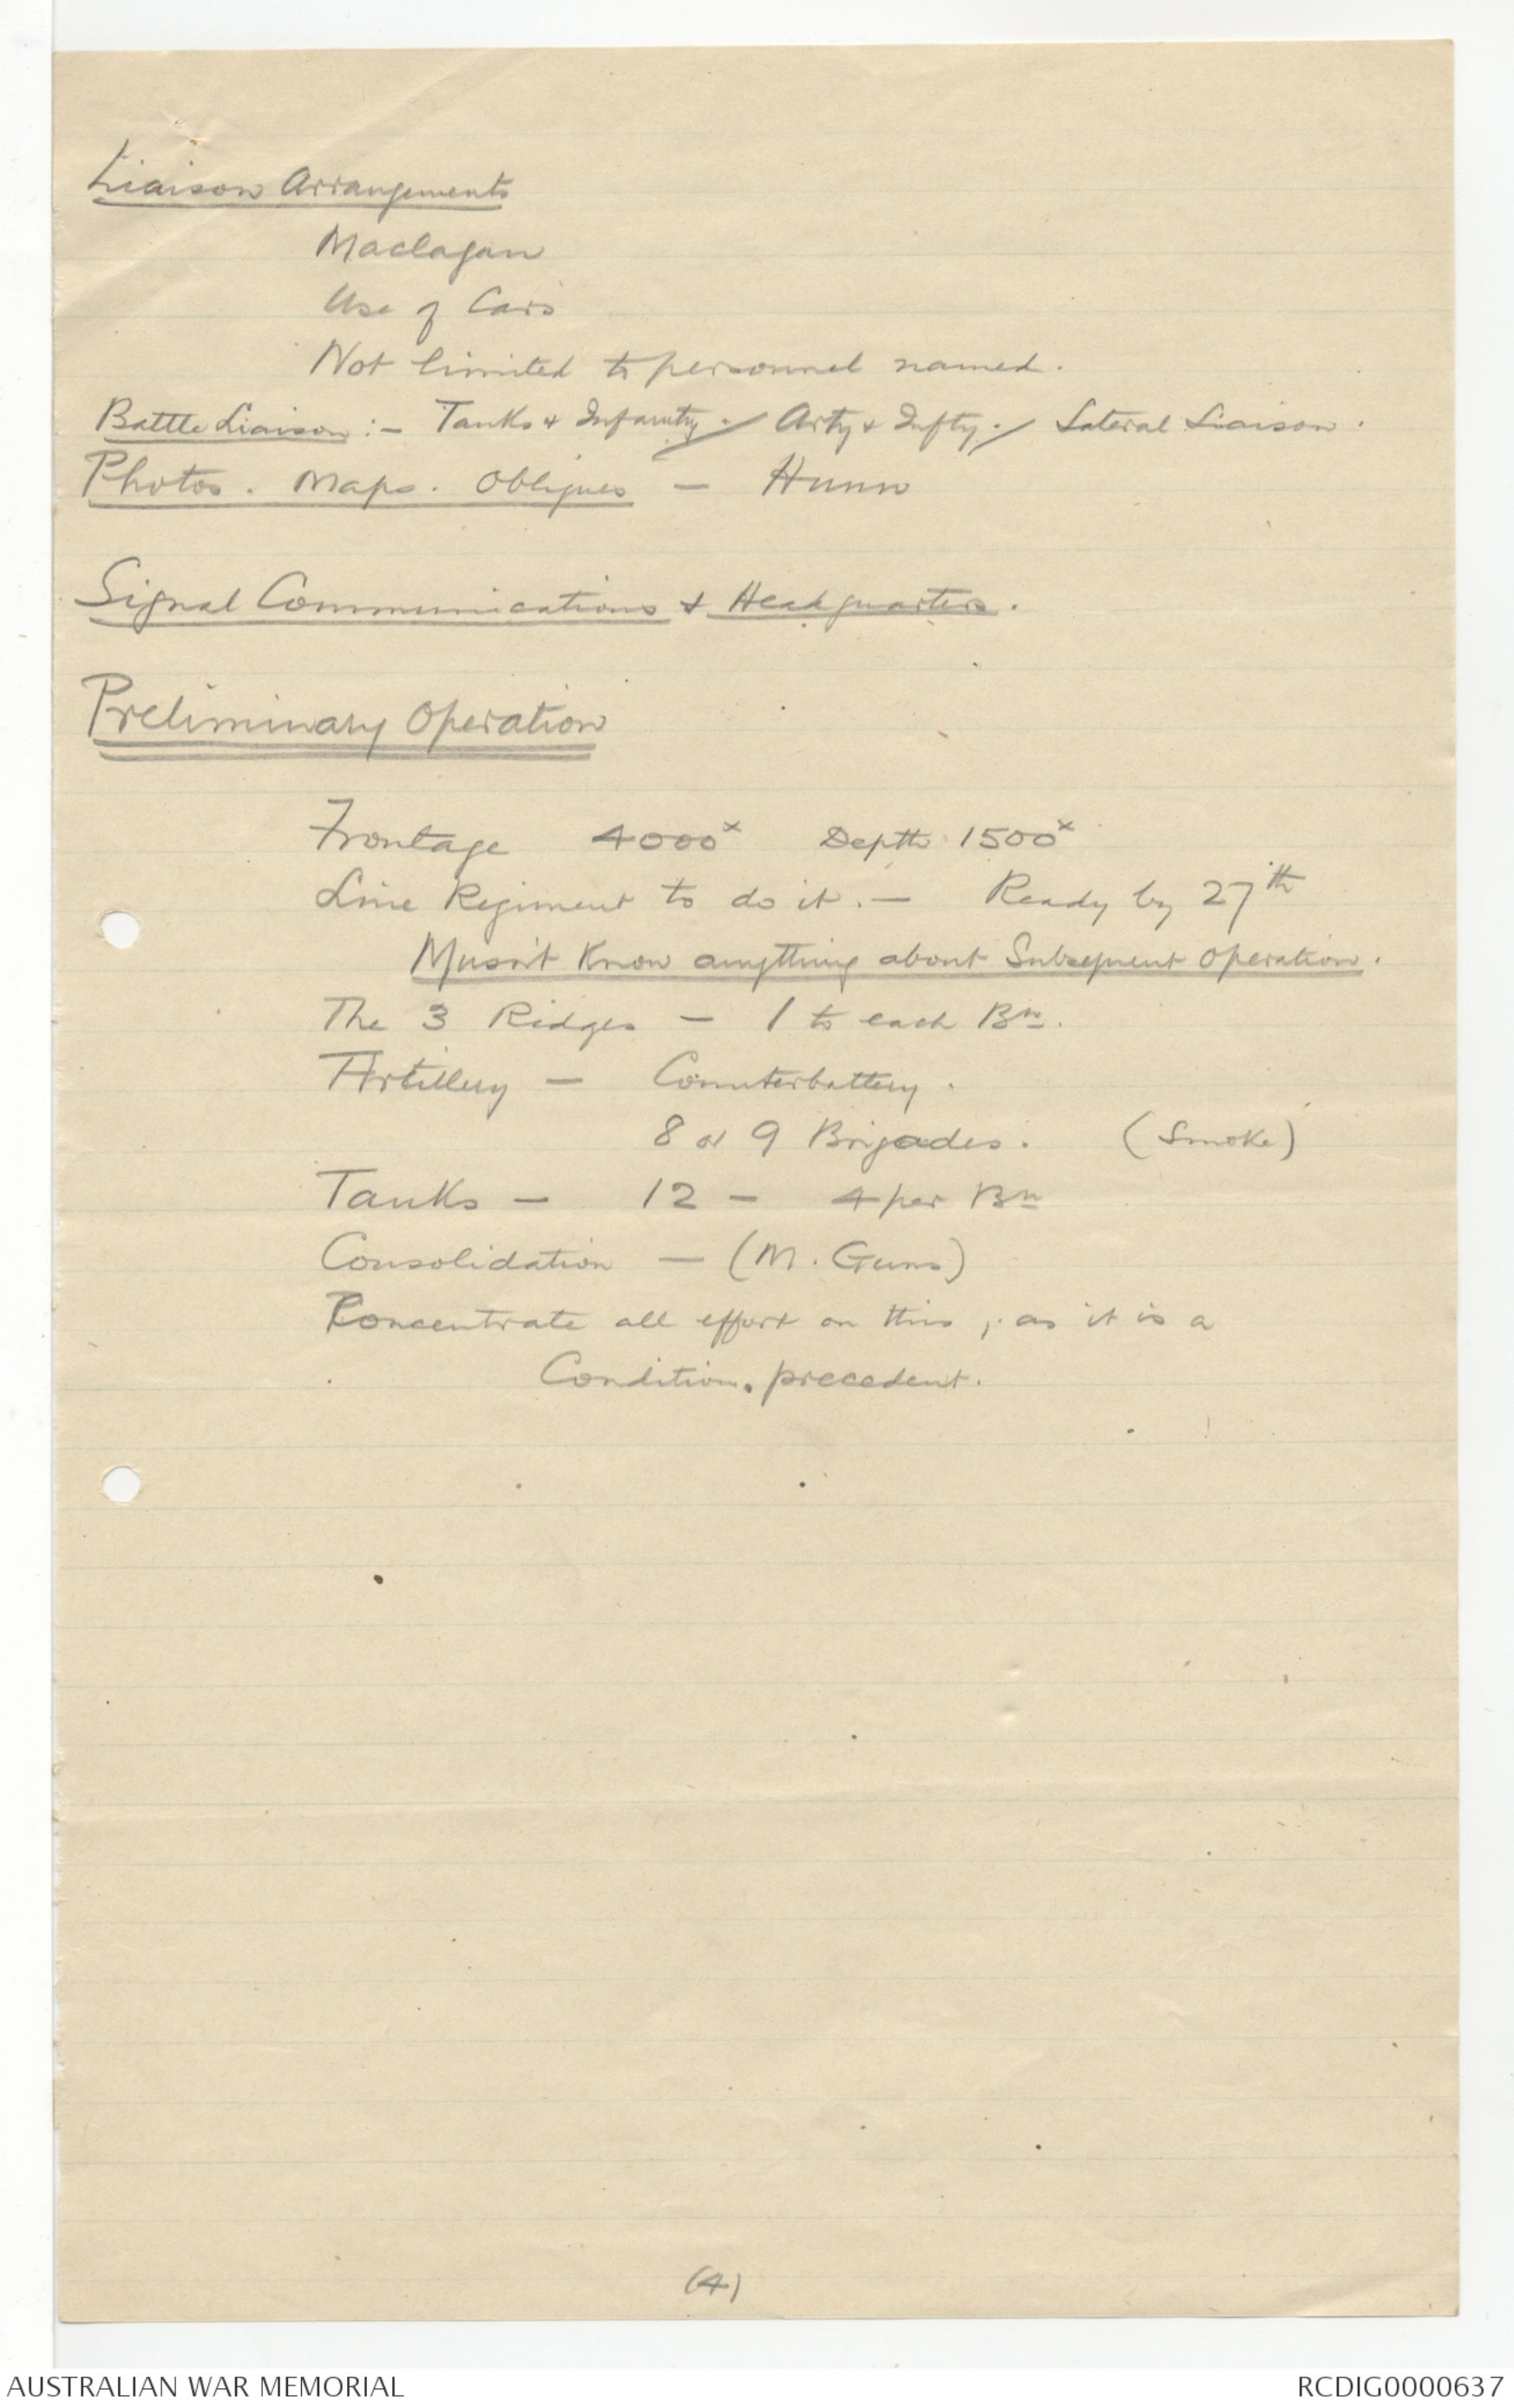 Liaison Arrangements
Maclagan
Use of Cars
Not limited to personnel named.
Battle Liaison :- Tanks & Infantry. / Arty & Infty. / Lateral Liaison.
Photos. Maps. Obliques - Hunn
Signal Communications & Headquarters.
Preliminary Operation
Frontage 4000ˣ Depth 1500ˣ
Line Regiment to do it. - Ready by 27th
Musn't Know anything about Subsequent Operation.
The 3 Ridges - 1 to each Bn.
Artillery - Counterbattery.
8 or 9 Brigades. (Smoke)
Tanks - 12 - 4 per Bn
Consolidation - (M. Guns)
Concentrate all effort on this, as it is a
Condition. precedent.
(4)
AUSTRALIAN WAR MEMORIAL
RCDIG0000637